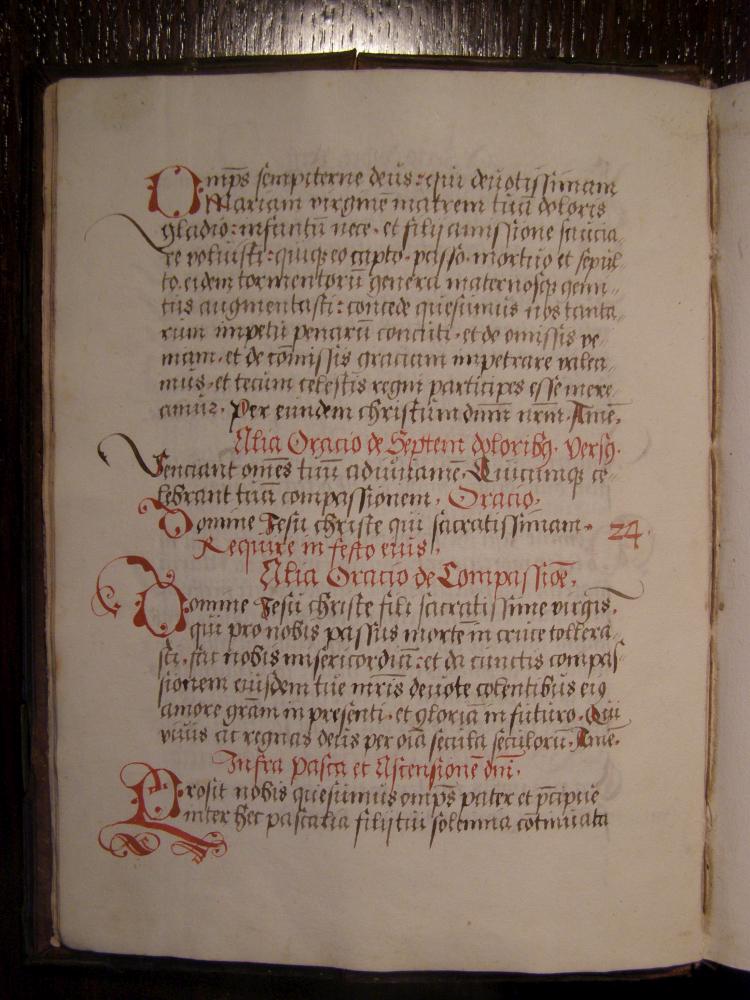 Omp̄s sempiterne deus: qui deuotissimam
Mariam virginē matrem tuā doloris
gladio: infantū nece, et filij amissione saucia-
re voluisti: quiq; eo capto, passo, mortuo et sepul-
to, eidem tormentorū genera maternosq; gemi-
tus augmentasti: concede quesumus nos tanta-
rum impetu penarū concuti, et de omissis ve-
niam, et de cōmissis graciam impetrare valea-
mus, et tecum celestis regni participes esse mere-
amur. Per eundem christum dnm̄ nrm̄. Amē.
Alia Oracio de Septem doloribq. Versq.
Venciant omēs tuū adiuuamē. Quicumq; ce-
lebrant tuā compassionem. Oracio.
Domine Jesu christe qui sacratissimam. 24.
Require in festo eius.
Alia Oracio de Compassiōe.
Domine Jesu christe fili sacratissime virgīs,
qui pro nobis passus mortē in cruce tollera-
sti, fac nobis misericordiā: et da cunctis compas-
sionem eiusdem tue mr̄is deuote colentibus eiq
amore grām in presenti, et gloriā in futuro. Qui
viuis ac regnas deus per oīa secula seculorū. Amē.
Infra Pasca et Ascensionē dnī.
Prosit nobis quesumus omp̄s pater et p̄cipue
inter hec pascalia filij tui solemnia cōtinuata